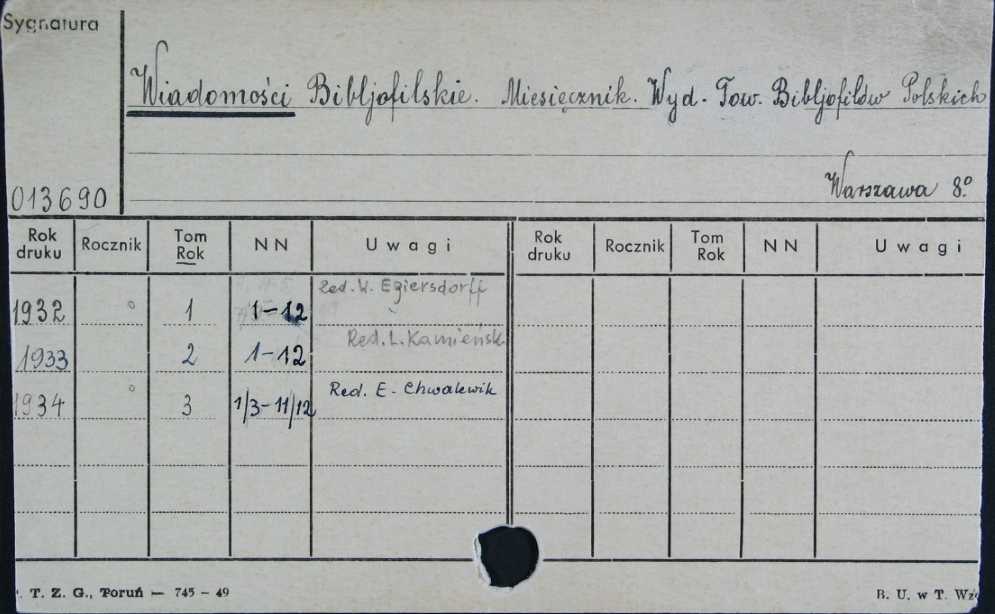 Sygnatura
Wiadomości Bibljofilskie. Miesięcznik. Wyd. Tow. Bibljofilów Polskich
Warszawa 8º
013690
Rok druku Rocznik Tom Rok NN Uwagi Rok druku Rocznik Tom Rok NN Uwagi
Red. W. Egiersdorff
1932 1 1-12
Red. L. Kamieńsk
1933 2 1-12
Red. E. Chwalewik
1934 3 1/3-11/12
T. Z. G., Toruń — 745 - 49
B. U. w T.